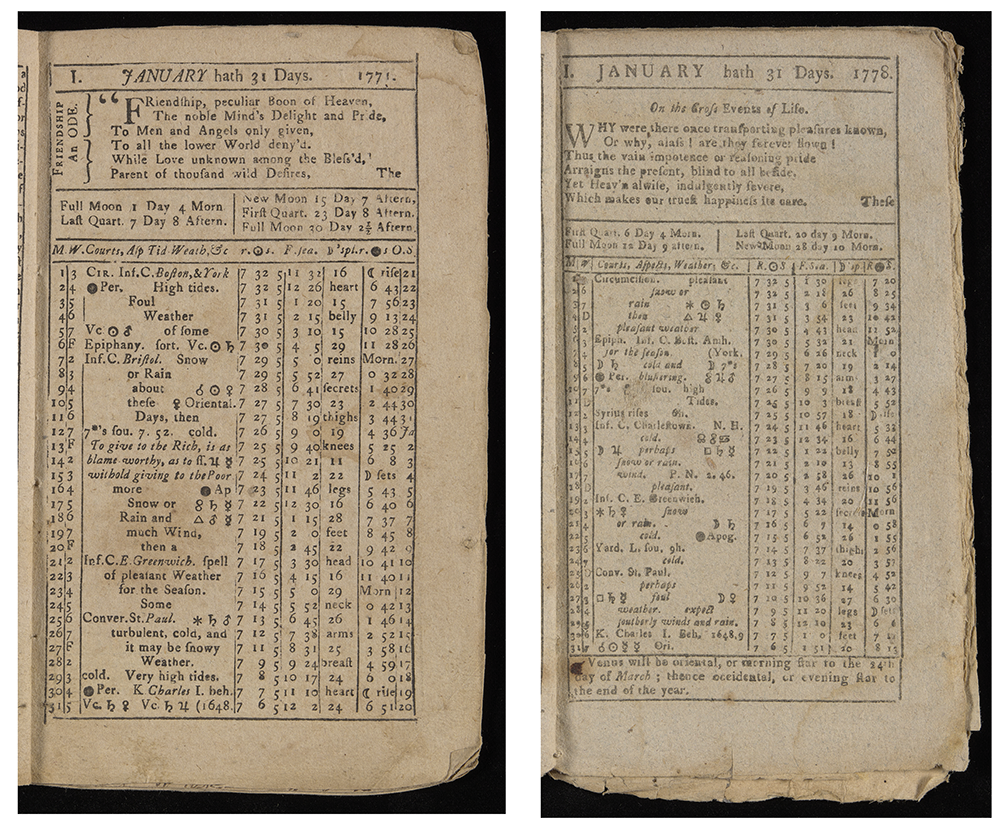 I. JANUARY hath 31 Days. 1771.
FRIENDSHIP
An ODE.
“FRiendſhip, peculiar Boon of Heaven,
The noble Mind's Delight and Pride,
To Men and Angels only given,
To all the lower World deny'd.
While Love unknown among the Bleſs'd,
Parent of thouſand wild Deſires, The
Full Moon 1 Day 4 Morn
Laſt Quart. 7 Day 8 Aftern.
New Moon 15 Day 7 Aftern,
Firſt Quart. 23 Day 8 Aftern.
Full Moon 30 Day 2¾ Aftern.
M. W. Courts, Aſp Tid Weath, &c r. ☉ s. F. ſea. ☽'s pl. r. ● s O.S.
1 3 CIR. Inf. C. Boſton, & York 7 32 5 11 32 16 ☾ riſe 21
2 4 ●Per. High tides. 7 32 5 12 26 heart 6 43 22
3 5 Foul 7 31 5 1 20 15 7 56 23
4 6 Weather 7 31 5 2 15 belly 9 13 24
5 7 Vc ☉ ♂ of ſome 7 30 5 3 10 15 10 28 25
6 F Epiphany. ſort. Vc. ☉ ♄ 7 30 5 4 5 29 11 28 26
7 2 Inf. C. Briſtol. Snow 7 29 5 5 0 reins Morn. 27
8 3 or Rain 7 29 5 5 52 27 0 32 28
9 4 about ☌ ☉ ♀ 7 28 5 6 41 ſecrets 1 40 29
10 5 theſe ♀ Oriental. 7 27 5 7 30 23 2 44 30
11 6 Days, then 7 27 5 8 19 thighs 3 44 31
12 7 7*'s ſou. 7. 52. cold. 7 26 5 9 0 19 4 36 Ja
13 F To give to the Rich, is as 7 25 5 9 40 knees 5 25 2
14 2 blame-worthy, as to ſſ. ♃ ☿ 7 25 5 10 21 11 6 8 3
15 3 withold giving to the Poor 7 24 5 11 2 22 ☽ ſets 4
16 4 more ● Ap 7 23 5 11 46 legs 5 43 5
17 5 Snow or 7 22 5 12 30 16 6 40 6
18 6 Rain and △ ♂ ☿ 7 21 5 1 15 28 7 37 7
19 7 much Wind, 7 19 5 2 0 feet 8 45 8
20 F then a 7 18 5 2 45 22 9 42 9
21 2 Inf. C. E. Greenwich. ſpell 7 17 5 3 30 head 10 41 10
22 3 of pleaſant Weather 7 16 5 4 15 16 11 40 11
23 4 for the Seaſon. 7 15 5 5 0 29 Morn 12
24 5 Some 7 14 5 5 52 neck 0 42 13
25 6 Conver. St. Paul. ✶ ♄ ♂ 7 13 5 6 45 26 1 46 14
26 7 turbulent, cold, and 7 12 5 7 38 arms 2 52 15
27 F it may be ſnowy 7 11 5 8 31 25 3 58 16
28 2 Weather. 7 9 5 9 24 breaſt 4 59 17
29 3 cold. Very high tides. 7 8 5 10 17 24 6 0 18
30 4 ●Per. K Charles I. beh. 7 7 5 11 10 heart ☾ riſe 19
31 5 Vc. ♄ ♀ Vc. ♄ ♃ (1648. 7 6 5 12 2 24 6 51 20
I. JANUARY hath 31 Days. 1778.
On the Croſs Events of Life.
WHY were there once tranſporting pleaſures known,
Or why, alaſs! are they forever flown!
Thus the vain impotence or reaſoning pride
Arraigns the preſent, blind to all beſide,
Yet Heav'n alwiſe, indulgently ſevere,
Which makes our trueſt happineſs its care. Theſe
Firſt Quart. 6 Day 4 Morn.
Full Moon 12 Day 9 aftern.
Laſt Quart. 20 day 9 Morn.
New Moon 28 day 10 Morn.
M W Courts, Aſpects, Weather, &c. R. ☉ S F. Sea. ☽'s p R ● S.
Circumciſion. pleaſant 7 32 5 1 30 7 20
ſnow or 7 32 5 2 18 26 8 25
rain ✶ ☉ ♄ 7 31 5 9 34
then △ ♃ ♀ 7 31 5 3 54 23 10 42
pleaſant weather 7 30 5 4 43 head 11 52
Epiph. Inf. C. Boſt. Amh. 7 30 5 5 32 21 Morn
for the ſeaſon. (York, 7 29 5 6 26 neck
cold and ☽ 7*s 7 28 5 7 20 19 2 14
● Per. bluſtering. 7 27 5 8 15 arms 3 27
ſou. high 7 26 5 9 9 18 4 43
Tides. 7 25 5 10 3 breaſt 5 52
Syrius riſes 6h. 7 25 5 10 57 18
Inf. C. Charleſtown. N. H. 7 24 5 11 46 heart 5 33
cold. 7 23 5 12 34 16 6 44
☽ ♃ perhaps □ ♄ ☿ 7 22 5 1 22 belly 7 52
ſnow or rain. 7 21 5 2 10 13 8 55
wind. P. N. 2. 46. 7 20 5 2 58 26 10
pleaſant. 7 19 5 3 46 reins 10 56
Inf. C. E. Greenwich. 7 18 5 4 34 20 11 56
✶ ♄ ♀ ſnow 7 17 5 5 22 ſecrets Morn
or rain. ☽ ♄ 7 16 5 6 7 14 0 58
cold. ● Apog. 7 15 5 6 52 26 1 55
Yard. L. ſou. 9h. 7 14 5 7 37 thighs 2 56
cold. 7 13 5 8 22 20 3 57
Conv. St. Paul. 7 12 5 9 7 knees 4 52
perhaps 7 11 5 9 52 14 5 42
□ ♄ ☿ foul ☽ ♀ 7 10 5 10 36 27 6 30
weather. expect 7 9 5 11 20 legs ☽ ſets
ſoutherly winds and rain. 7 8 5 12 10 23 6 6
K. Charles I. Beh. 1648,9 7 7 5 1 0 feet 7
Ori. 7 6 5 1 51 20 8 13
Venus will be oriental, or morning ſtar to the 24th
day of March; thence occidental, or evening ſtar to
the end of the year.